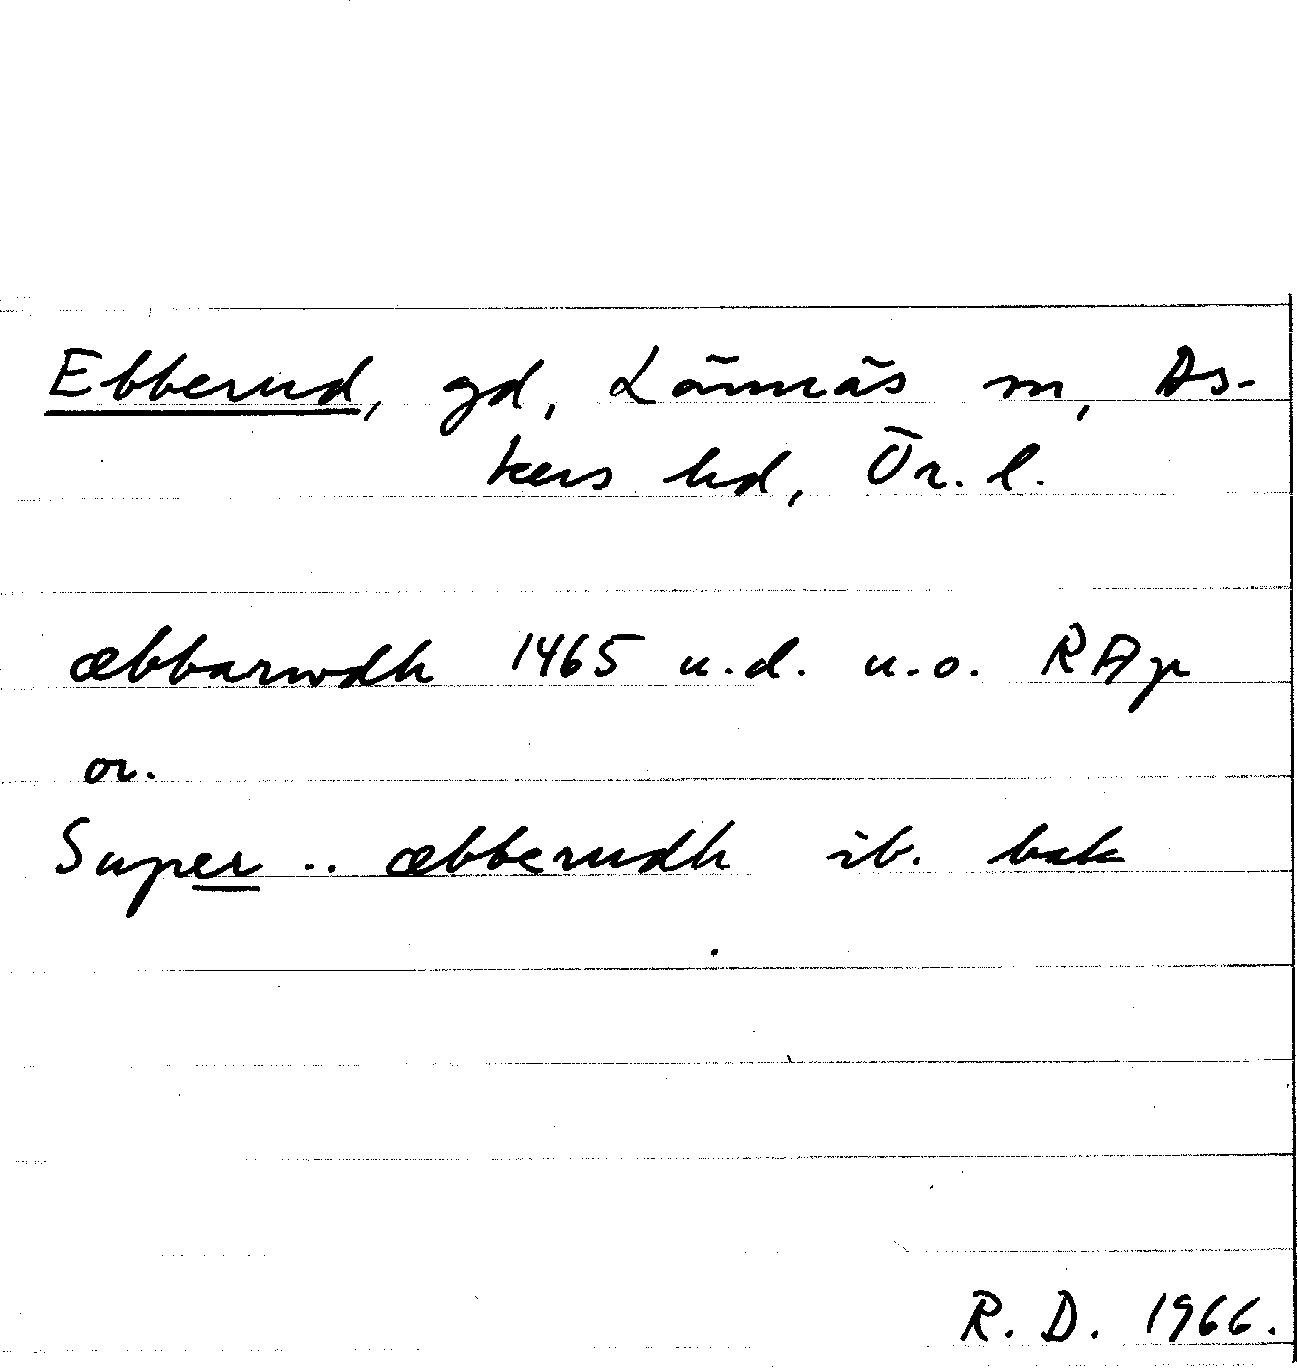 Ebberud, gd, Lännäs sn, As-
kers hd, Ör. l.
æbbarwdh 1465 u.d. u.o. RAp
or.
Super .. æbberudh ib. bak
R. D. 1966.